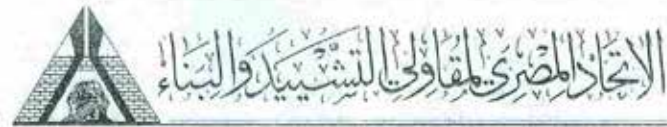 الاتحاد المصري لمقاولي التشييد والبناء